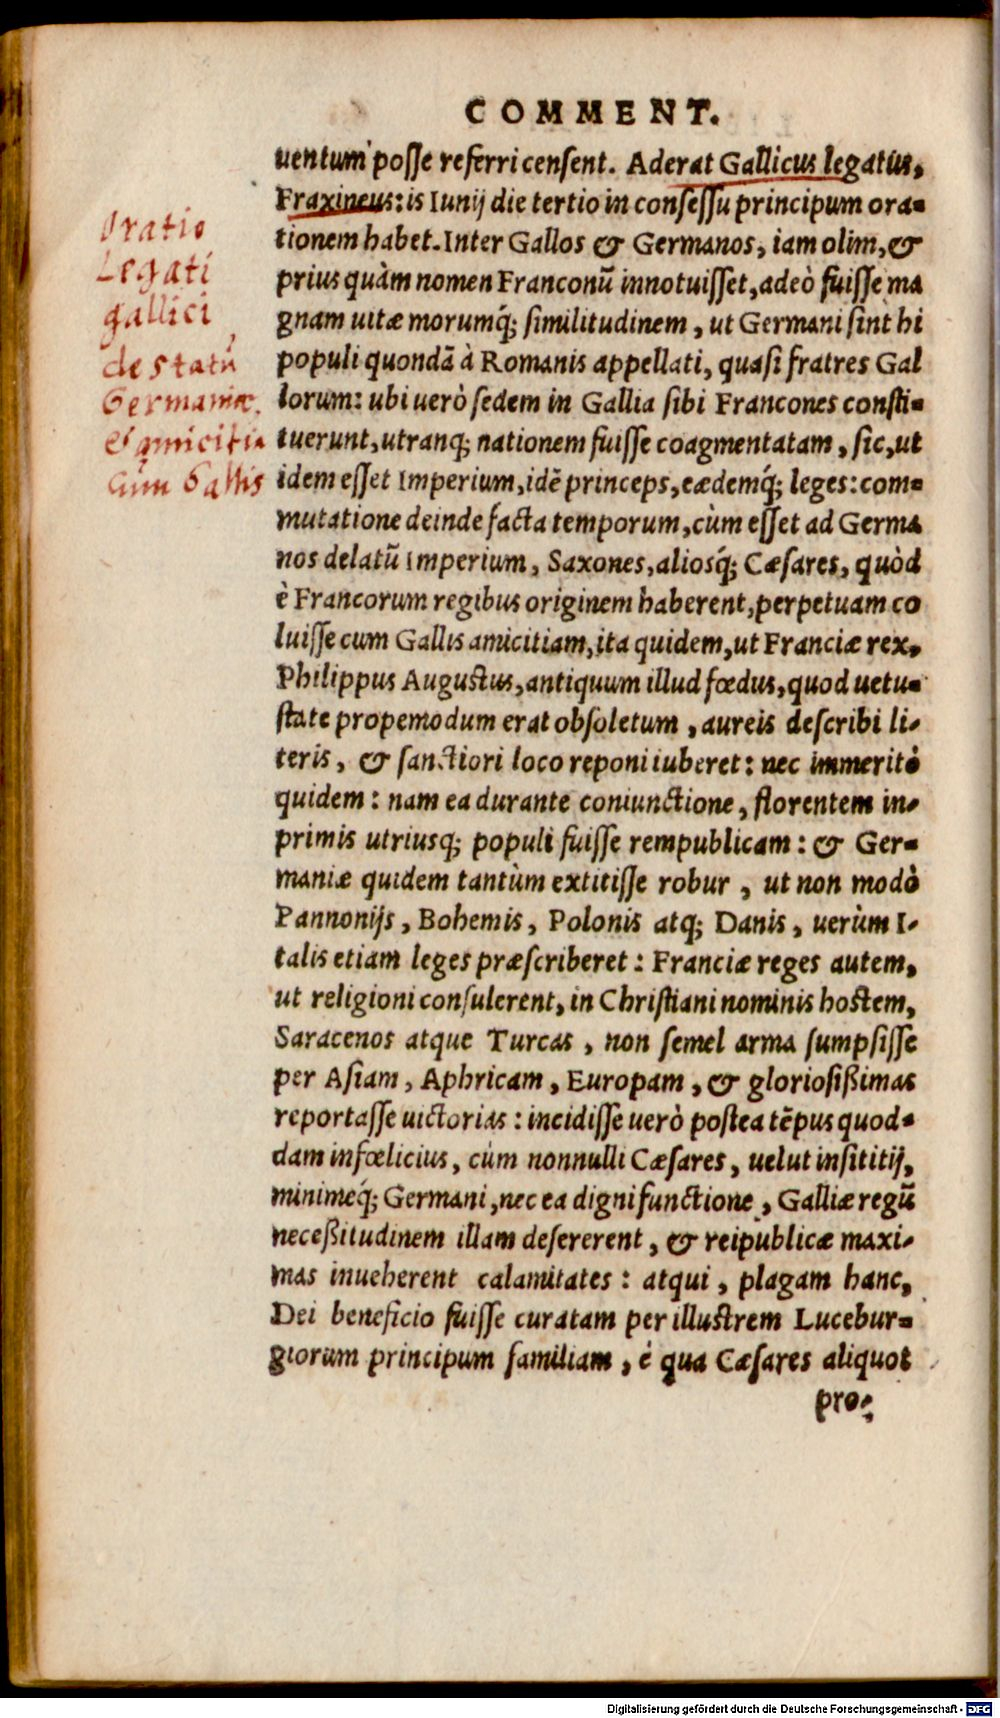 COMMENT.
uentum posse referri censent. Aderat Gallicus legatus,
Fraxineus: is Iunij die tertio in consessu principum ora-
tionem habet. Inter Gallos & Germanos, iam olim, &
prius quàm nomen Franconū innotuisset, adeò fuisse ma
gnam uitæ morumq́; similitudinem, ut Germani sint hi
populi quondā à Romanis appellati, quasi fratres Gal
lorum: ubi uerò sedem in Gallia sibi Francones consti-
tuerunt, utranq; nationem fuisse coagmentatam, sic, ut
idem esset Imperium, idē princeps, eædemq́; leges: com-
mutatione deinde facta temporum, cùm esset ad Germa
nos delatū Imperium, Saxones, aliosq́; Cæsares, quòd
è Francorum regibus originem haberent, perpetuam co
luisse cum Gallis amicitiam, ita quidem, ut Franciæ rex,
Philippus Augustus, antiquum illud fœdus, quod uetu-
state propemodum erat obsoletum, aureis describi li-
teris, & sanctiori loco reponi iuberet: nec immeritò
quidem: nam ea durante coniunctione, florentem in-
primis utriusq; populi fuisse rempublicam: & Ger-
maniæ quidem tantùm extitisse robur, ut non modò
Pannonijs, Bohemis, Polonis atq; Danis, uerùm I-
talis etiam leges præscriberet: Franciæ reges autem,
ut religioni consulerent, in Christiani nominis hostem,
Saracenos atque Turcas, non semel arma sumpsisse
per Asiam, Aphricam, Europam, & gloriosißimas
reportasse uictorias: incidisse uerò postea tēpus quod-
dam infœlicius, cùm nonnulli Cæsares, uelut insititij,
minimeq́; Germani, nec ea digni functione, Galliæ regū
neceßitudinem illam desererent, & reipublicæ maxi-
mas inueherent calamitates: atqui, plagam hanc,
Dei beneficio fuisse curatam per illustrem Lucebur-
giorum principum familiam, è qua Cæsares aliquot
pro-
Oratio
Legati
gallici
de statu
Germaniæ.
Et amicitia
cum Gallis
Digitalisierung gefördert durch die Deutsche Forschungsgemeinschaft - DFG